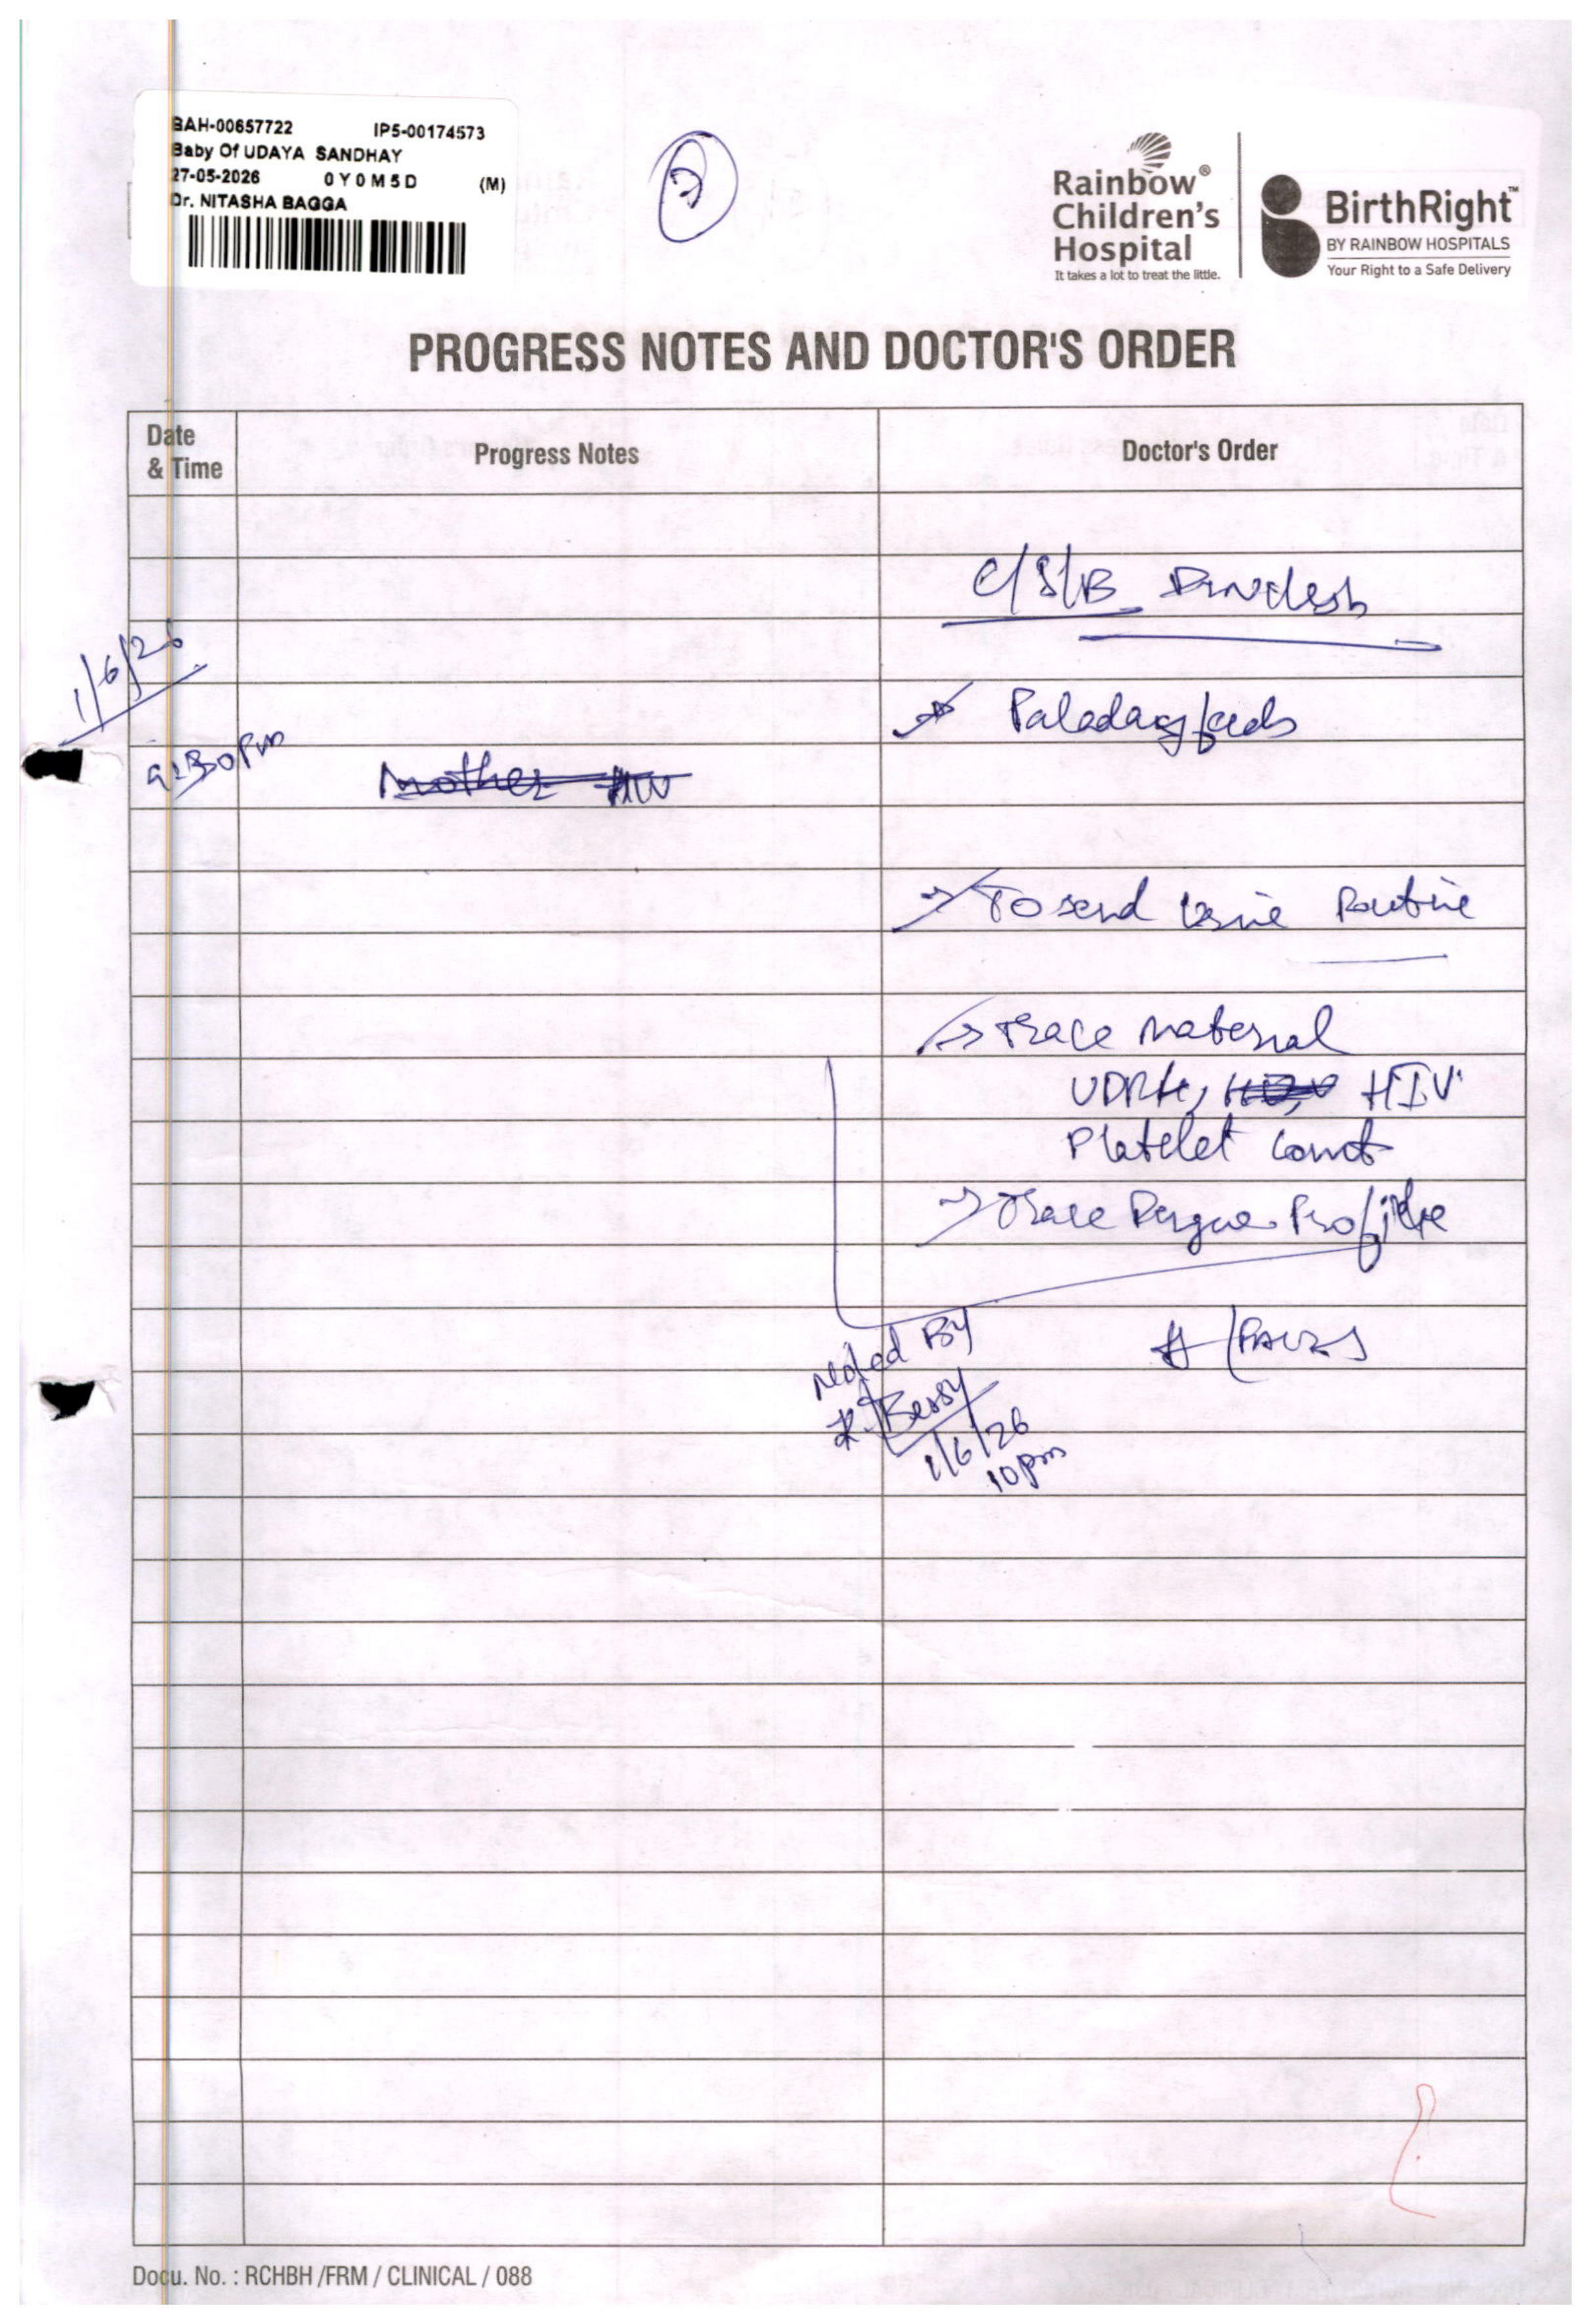 BAH-00657722 IP5-00174573
Baby Of UDAYA SANDHAY
27-05-2026 0Y0M5D (M)
Dr. NITASHA BAGGA
2
Rainbow®
Children's
Hospital
It takes a lot to treat the little.
BirthRight™
BY RAINBOW HOSPITALS
Your Right to a Safe Delivery
PROGRESS NOTES AND DOCTOR'S ORDER
Date
& Time
Progress Notes
Doctor's Order
C/S/B
1/6/26
9:30pm
Paladay feeds
Mother HIV
→ To send Urine Routine
→ Trace maternal
VDRL, HIV
Platelet count
→ Trace Dengue Profile
Noted By
1/6/26
10pm
Docu. No. : RCHBH /FRM / CLINICAL / 088